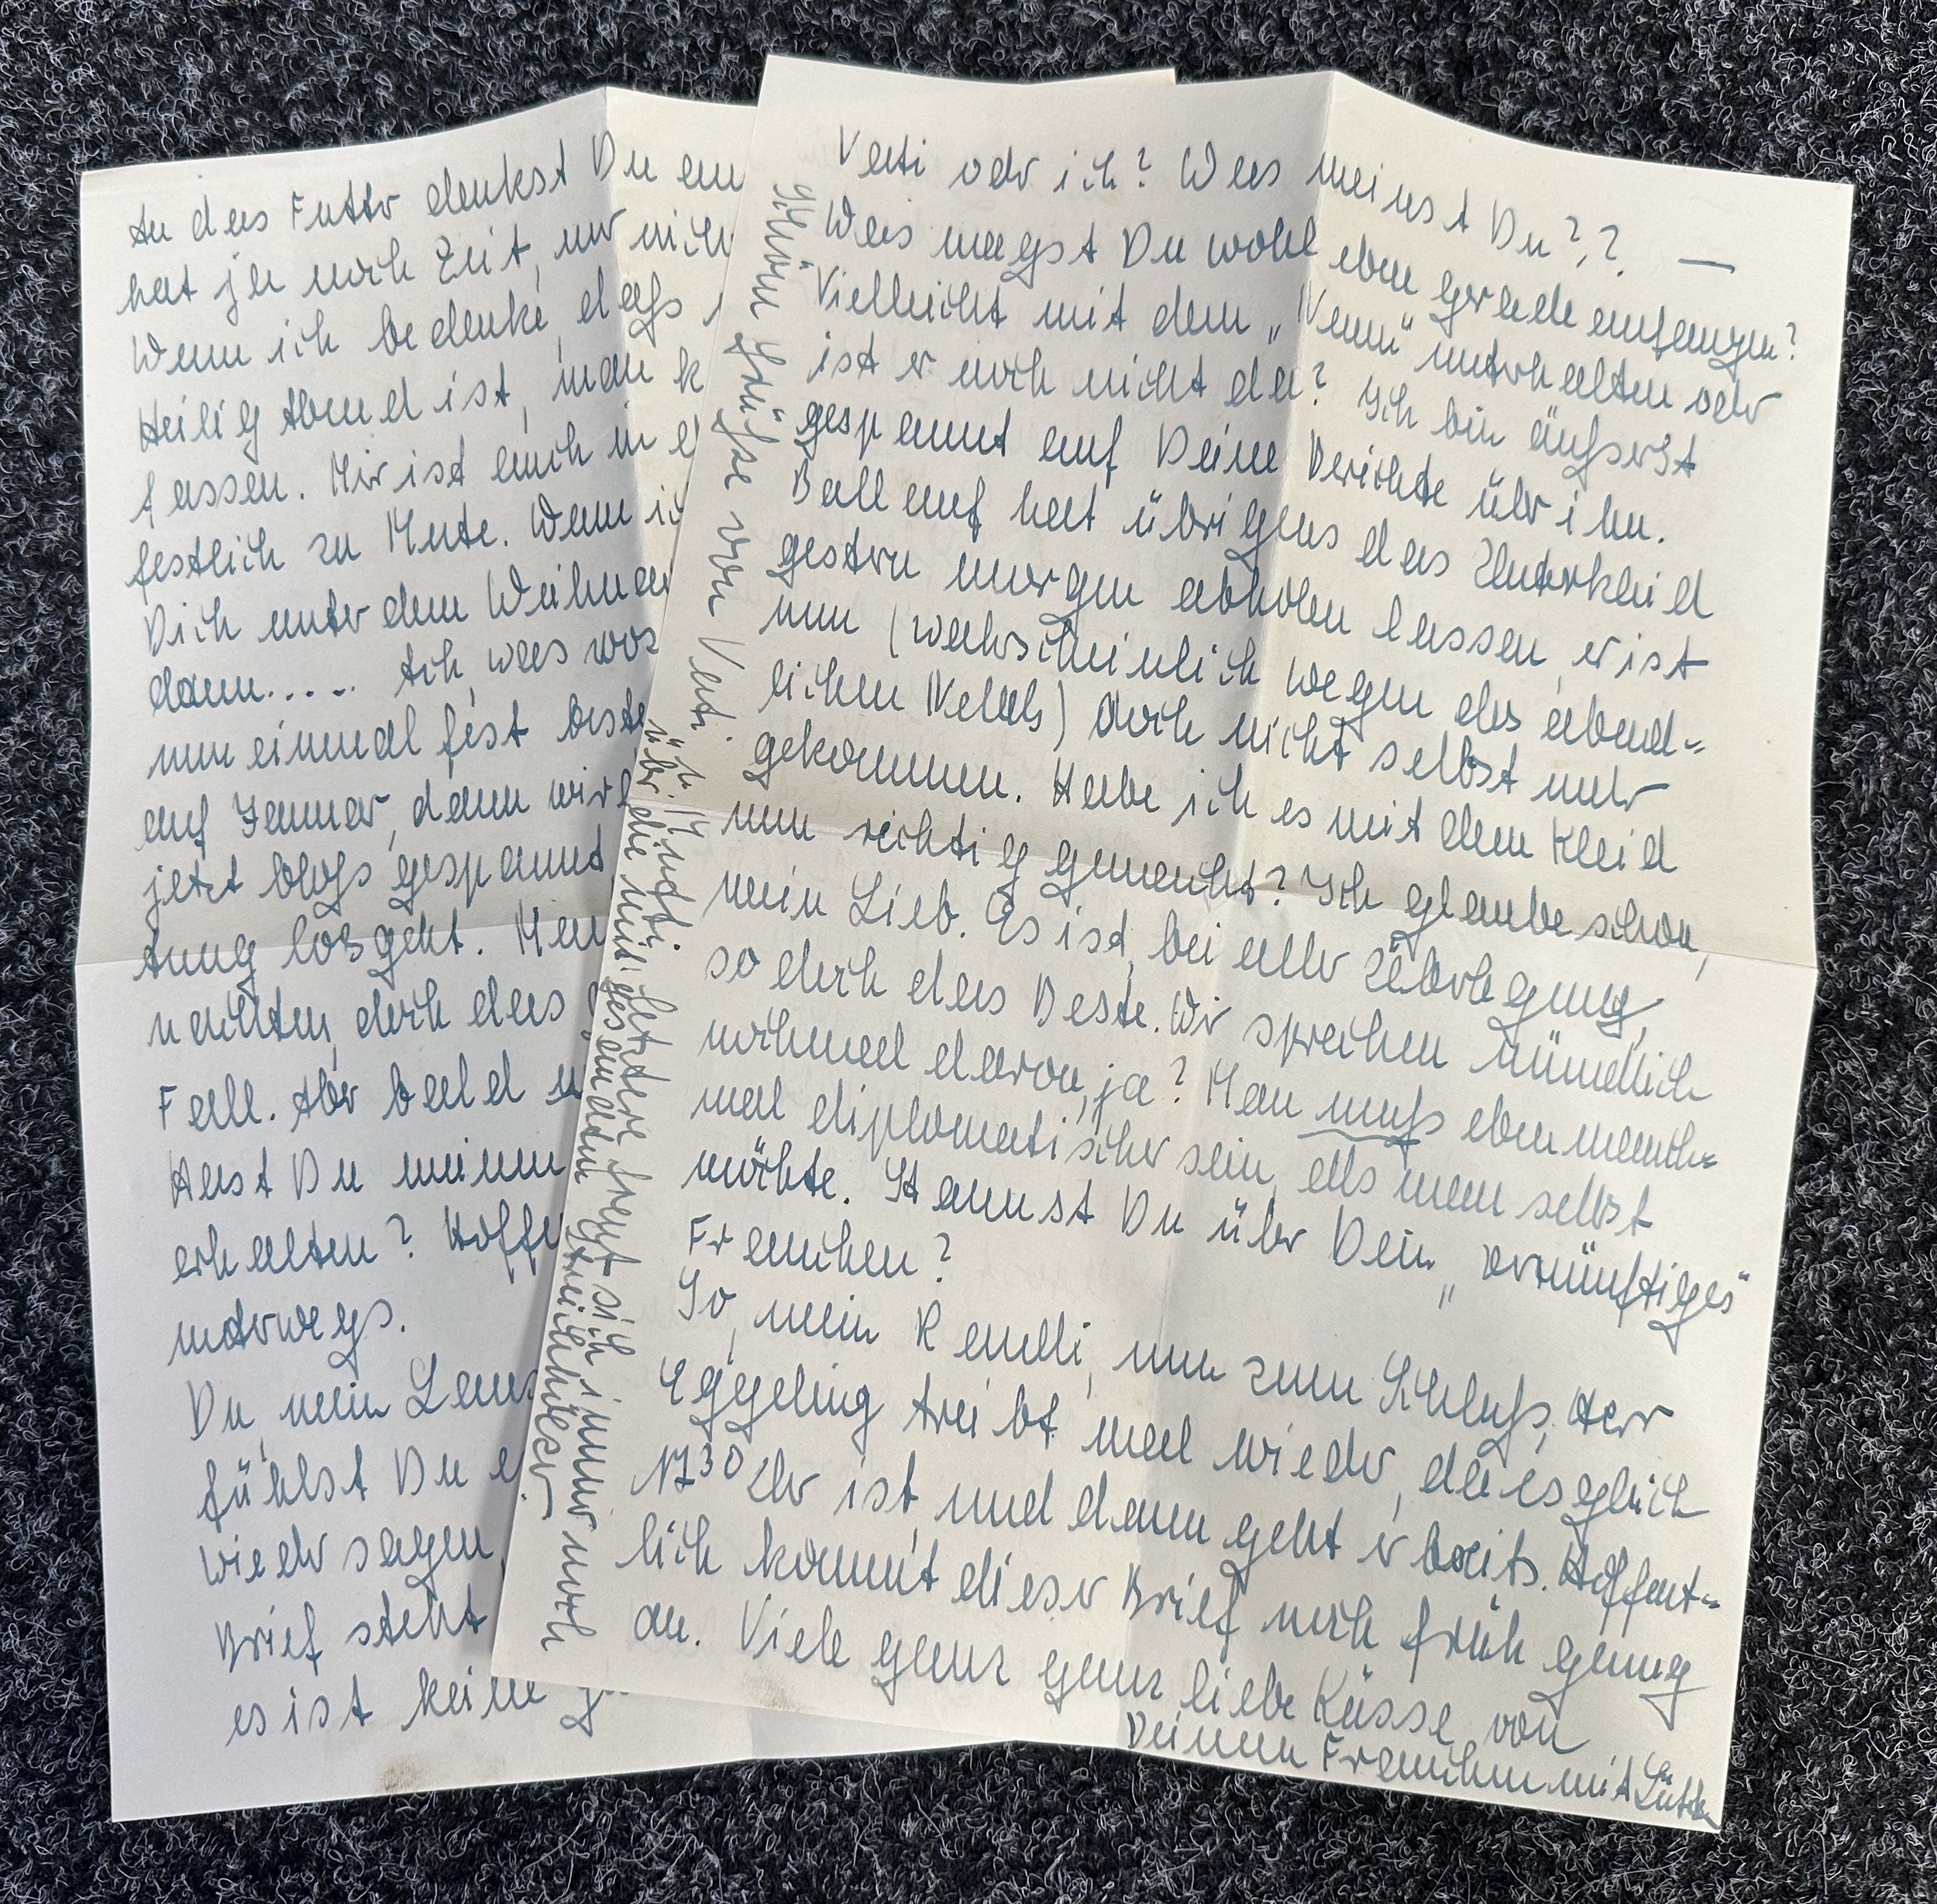 An das Futter denkst Du
hat ja noch Zeit, nur nich
Wenn ich bedenke, daß
Heilig Abend ist, man k
fassen. Mir ist auch in
festlich zu Mute. Wenn ic
Dich unter dem Weihna
dann..... Ach, was
nun einmal fest beste
auf Januar, dann wir
jetzt bloß gespannt
tung losgeht. Man
nachten, doch das
Fall. Aber bald
Hast Du meinen
erhalten? Hoff
unterwegs.
Du, mein
fühlst Du
wieder sagen,
Brief steht
es ist keine
Vati oder ich? Was meinst Du?,? —
Was magst Du wohl eben gerade anfangen?
Vielleicht mit dem „Neuen“ unterhalten oder
ist er noch nicht da? Ich bin äußerst
gespannt auf Deine Berichte über ihn.
Ballauf hat übrigens das Unterkleid
gestern morgen abholen lassen, er ist
nun (wahrscheinlich wegen des abend=
lichen Nebels) doch nicht selbst mehr
gekommen. Habe ich es mit dem Kleid
nun richtig gemacht? Ich glaube schon,
mein Lieb. Es ist, bei aller Überlegung,
so doch das Beste. Wir sprechen mündlich
nochmal davon, ja? Man muß eben manch=
mal diplomatischer sein, als man selbst
möchte. Staunst Du über Dein „vernünftiges“
Frauchen?
So, mein Raudi, nun zum Schluß, Herr
Eggeling treibt mal wieder, da es gleich
17³⁰ Uhr ist, und dann geht er bereits. Hoffent=
lich kommt dieser Brief noch früh genug
an. Viele ganz ganz liebe Küsse von
Deinem Frauchen mit
Schöne Grüße von Vati
u. Mutti, letztere freut sich immer noch
über die mitgesandten Streichhölzer. —